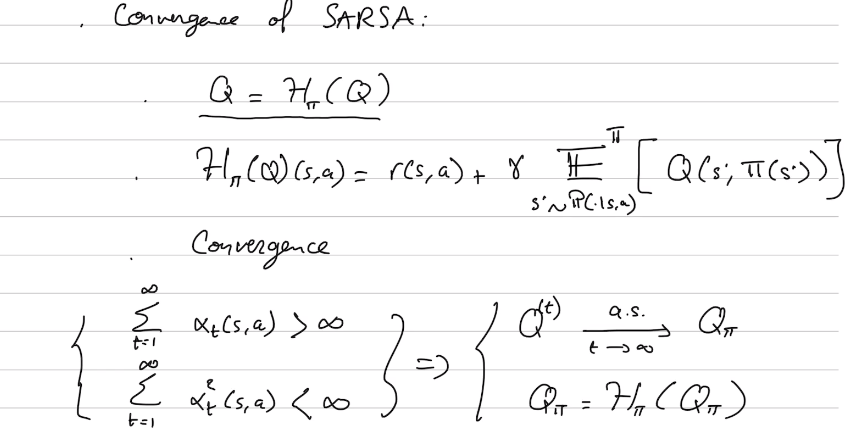 . Convergence of SARSA:
. Q = H_π(Q)
. H_π(Q)(s,a) = r(s,a) + γ 𝔼^π_{s'~ℙ(·|s,a)} [ Q(s', π(s')) ]
. Convergence
{ ∑_{t=1}^{∞} α_t(s,a) > ∞ } => { Q^{(t)} →^{a.s.}_{t→∞} Q_π
{ ∑_{t=1}^{∞} α_t^2(s,a) < ∞ } => { Q_π = H_π(Q_π)